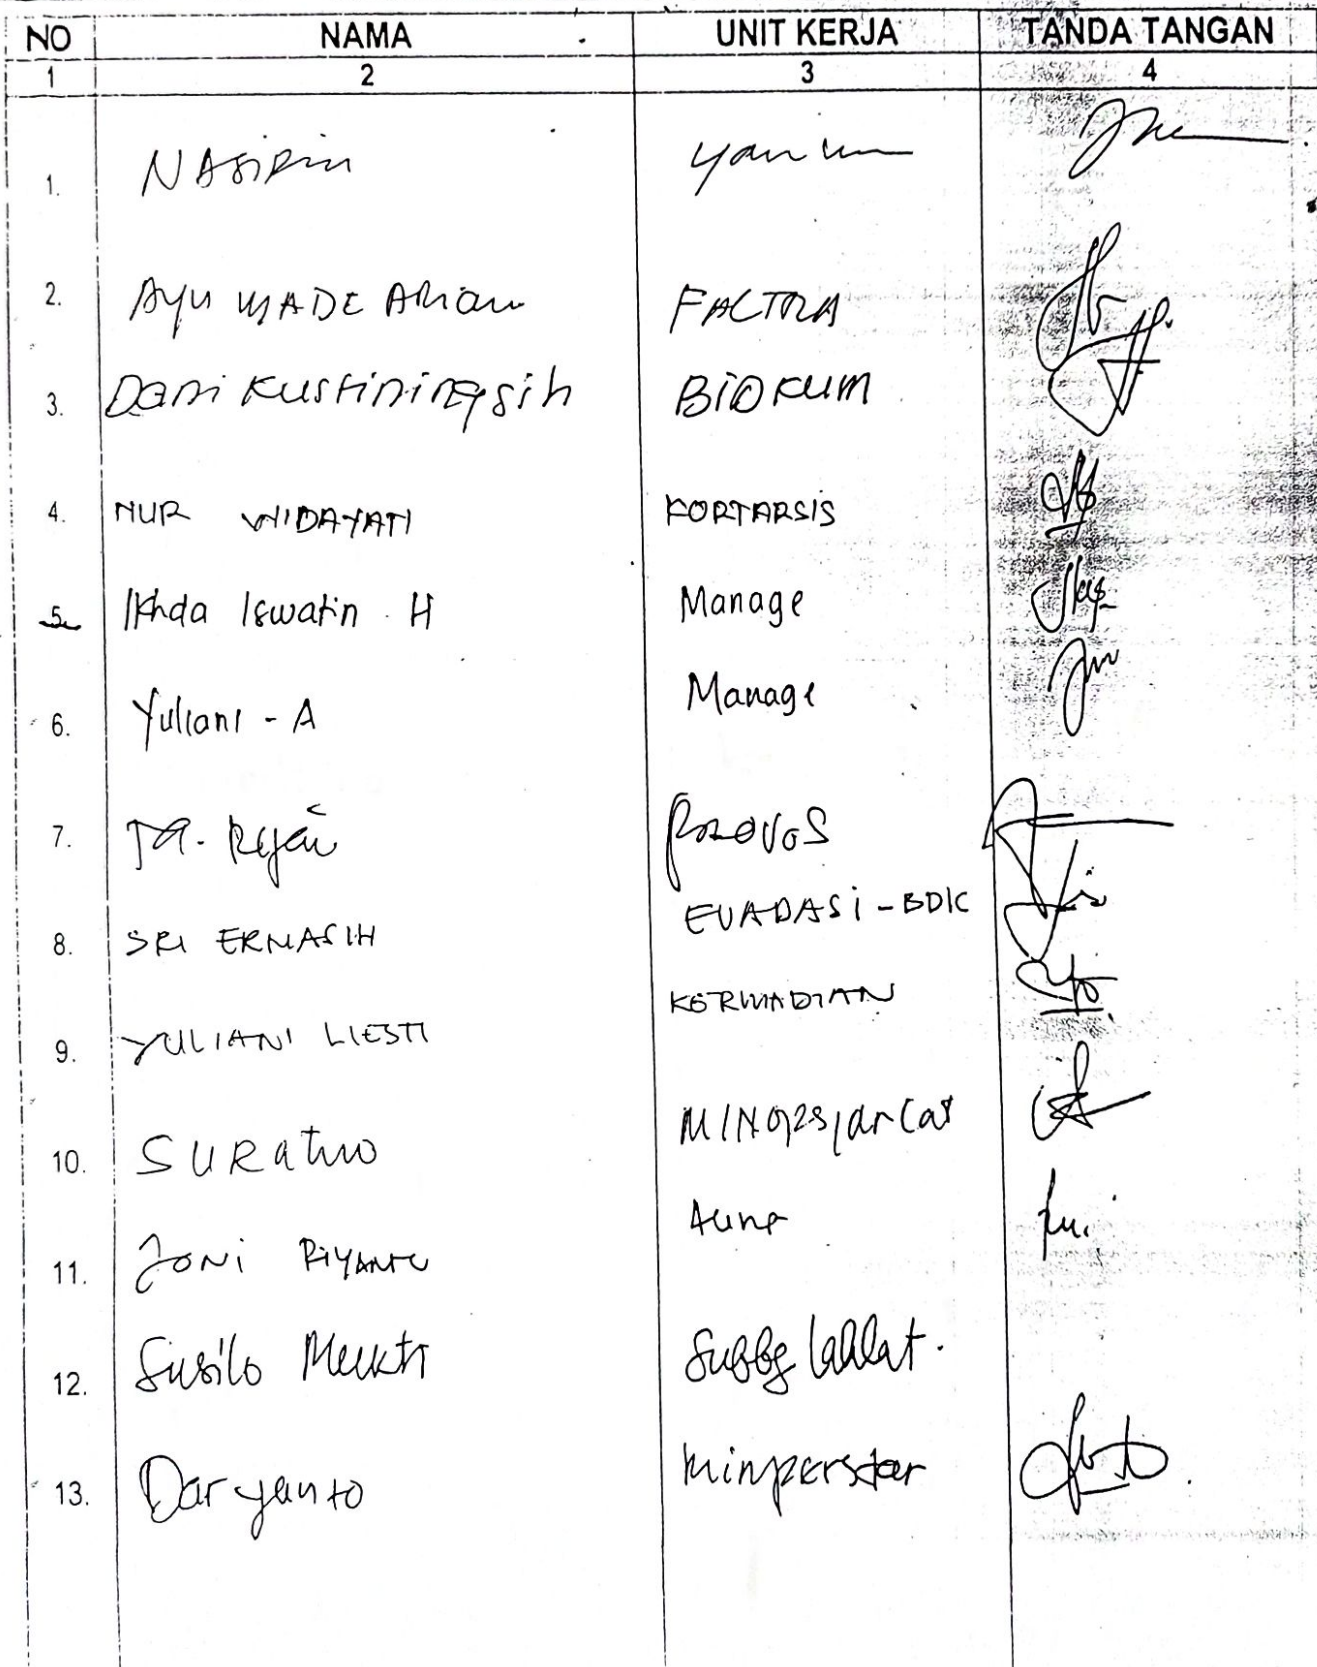 NO NAMA UNIT KERJA TANDA TANGAN
1 2 3 4
1. NASIRIN
2. Ayu MADE Ariani FALTRA
3. Dani Kustiriningsih BIDKUM
4. NUR WIDAYATI KORTARSIS
5. Ikhda Iswatin H Manage
6. Yuliani - A Manage
7. PROVOS
8. SRI ERNASIH EVADASI - BDIC
9. YULIANI LIESTI KERMADIAN
10. SURATNO
11. JONI RIYANTO
12. Susilo Mukti Subbg lahlat.
13. Daryanto minperstar